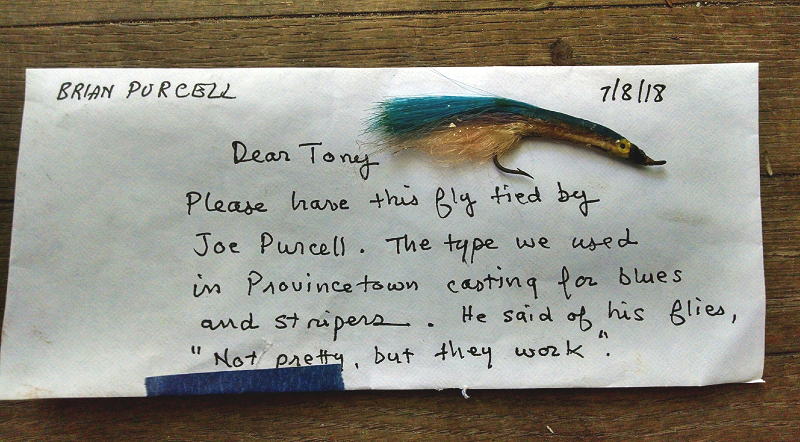 BRIAN PURCELL 7/8/18
Dear Tony
Please have this fly tied by
Joe Purcell. The type we used
in Provincetown casting for blues
and stripers. He said of his flies,
"Not pretty, but they work".